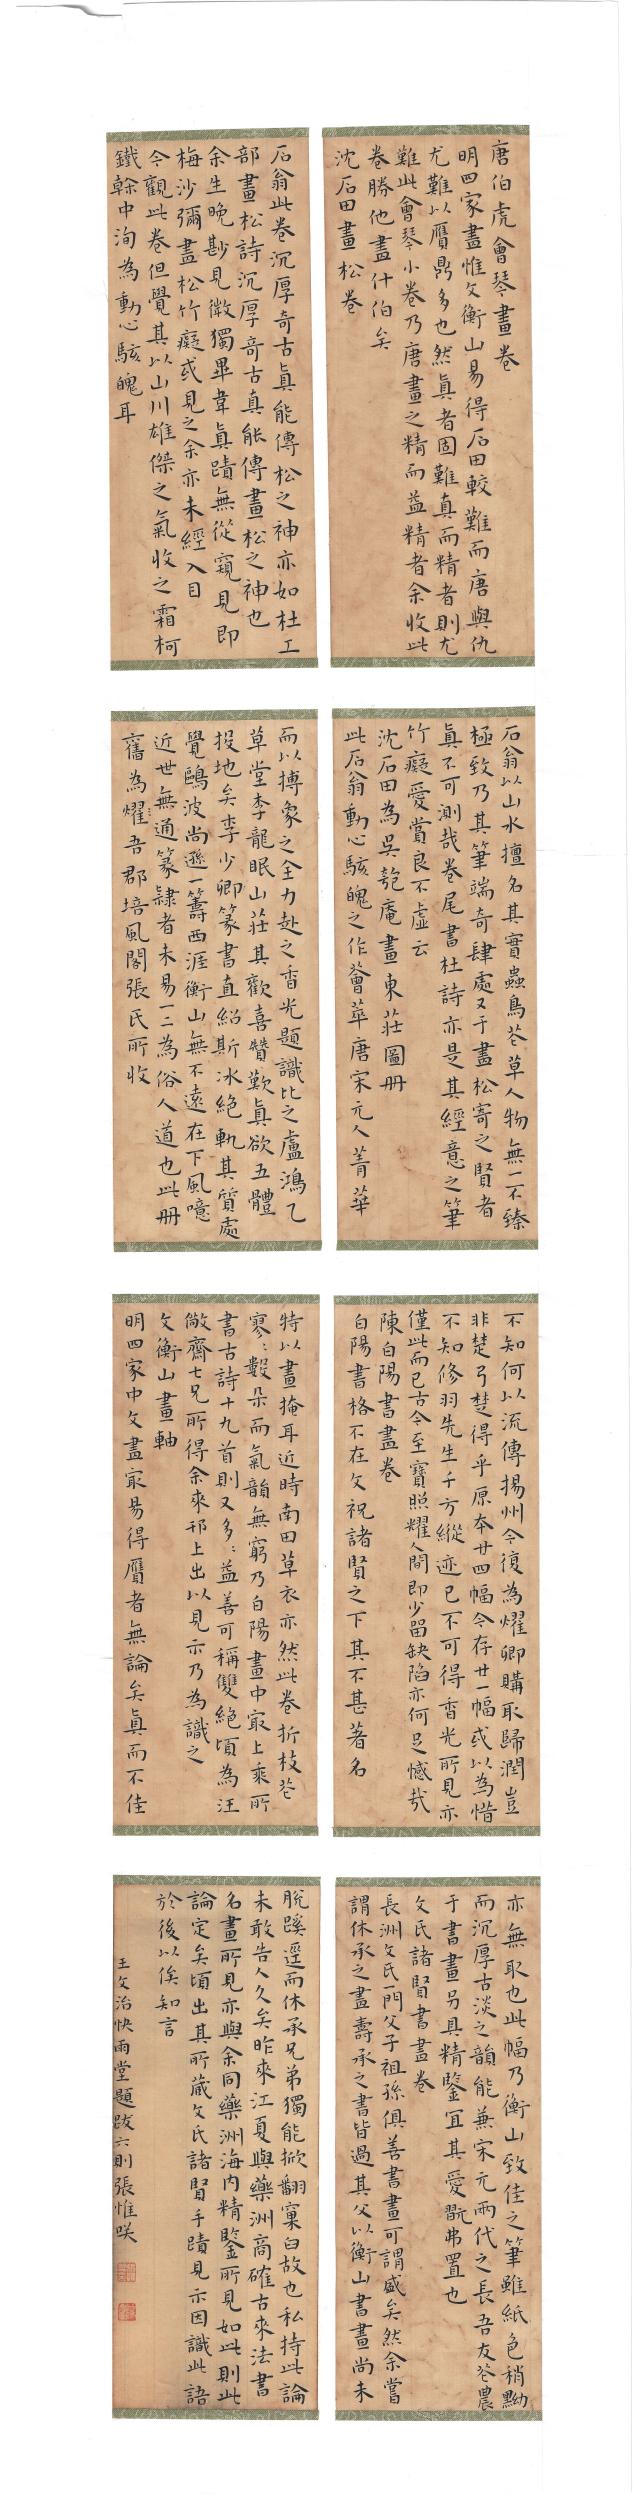 唐伯虎會琴畫卷
明四家畫惟文衡山易得石田較難而唐與仇
尤難以贋鼎多也然眞者固難真而精者則尤
難此會琴小卷乃唐畫之精而益精者余收此
卷勝他畫什伯矣
沈石田畫松卷
石翁此卷沉厚奇古眞能傳松之神亦如杜工
部畫松詩沉厚奇古真能傳畫松之神也
余生晚尠見微獨畢韋眞蹟無從窺見即
梅沙彌畫松竹癡或見之余亦未經入目
今觀此卷但覺其以山川雄傑之氣收之霜柯
鐵榦中洵為動心駭魄耳
石翁以山水擅名其實蟲鳥花草人物無一不臻
極致乃其筆端奇肆處又于畫松寄之賢者
眞不可測哉卷尾書杜詩亦是其經意之筆
竹癡愛賞良不虛云
沈石田為吳匏庵畫東莊圖冊
此石翁動心駭魄之作薈萃唐宋元人菁華
而以搏象之全力赴之香光題識比之盧鴻乙
草堂李龍眠山莊其歡喜贊歎眞欲五體
投地矣李少卿篆書直紹斯冰絕軌其質處
覺鷗波尚遜一籌西涯衡山無不遠在下風噫
近世無通篆隸者未易一二為俗人道也此冊
舊為吾郡培風閣張氏所收
不知何以流傳揚州今復為燿卿購取歸潤豈
非楚弓楚得乎原本廿四幅今存廿一幅或以為惜
不知修羽先生千方縱迹已不可得香光所見亦
僅此而已古今至寶照耀人間即少留缺陷亦何足憾哉
陳白陽書畫卷
白陽書格不在文祝諸賢之下其不甚著名
特以畫掩耳近時南田草衣亦然此卷折枝花
寥寥數朵而氣韻無窮乃白陽畫中㝡上乘所
書古詩十九首則又多多益善可稱雙絕頃為汪
敞齋七兄所得余來邗上出以見示乃為識之
文衡山畫軸
明四家中文畫㝡易得贋者無論矣眞而不佳
亦無取也此幅乃衡山致佳之筆雖紙色稍黝
而沉厚古淡之韻能兼宋元兩代之長吾友花農
于書畫另具精鑒宜其愛翫弗置也
文氏諸賢書畫卷
長洲文氏一門父子祖孫俱善書畫可謂盛矣然余嘗
謂休承之畫壽承之書皆過其父以衡山書畫尚未
脫蹊逕而休承兄弟獨能掀翻窠臼故也私持此論
未敢告人久矣昨來江夏與藥洲商確古來法書
名畫所見亦與余同藥洲海內精鑒所見如此則此
論定矣頃出其所藏文氏諸賢手蹟見示因識此語
於後以俟知言
王文治快雨堂題跋六則張惟咲